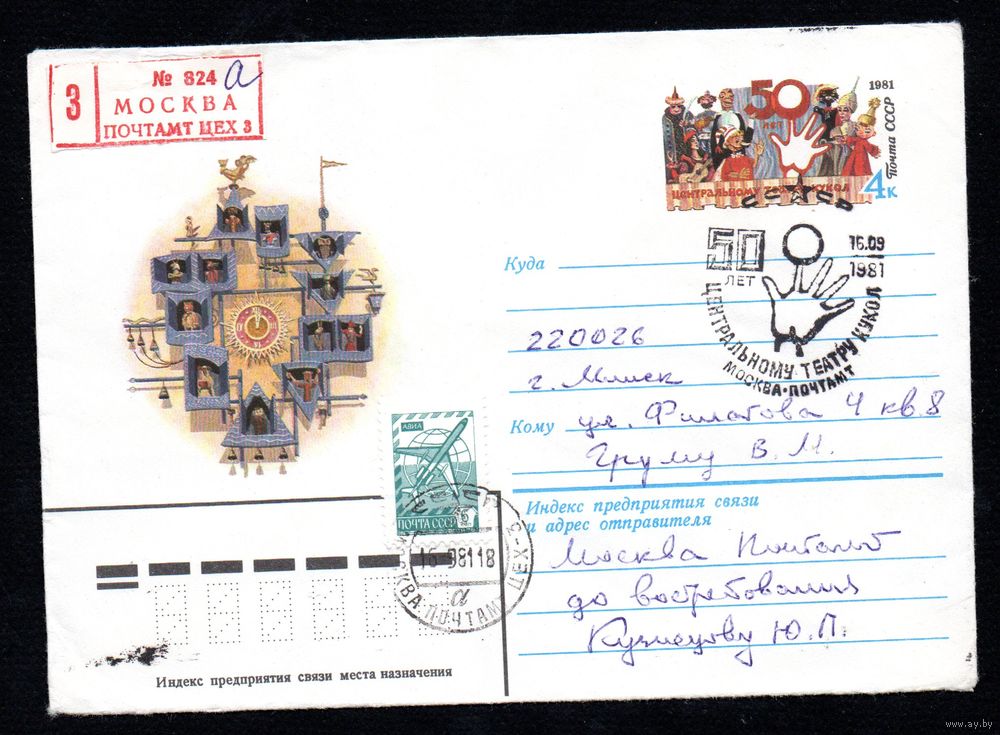 № 824 а
З
МОСКВА
ПОЧТАМТ ЦЕХ 3
1981
50
ЛЕТ
Почта СССР
ЦЕНТРАЛЬНОМУ ТЕАТРУ КУКОЛ
4к
СССР
50
ЛЕТ
16.09
1981
ЦЕНТРАЛЬНОМУ ТЕАТРУ КУКОЛ
МОСКВА·ПОЧТАМТ
Куда
220026
г. Минск
Кому ул. Филатова 4 кв 8
Груму В. М.
АВИА
ПОЧТА СССР
МОСКВА ПОЧТАМТ
ЦЕХ-3
а
Индекс предприятия связи
и адрес отправителя
Москва Почтамт
до востребования
Кузнецову Ю. П.
Индекс предприятия связи места назначения
www.ay.by